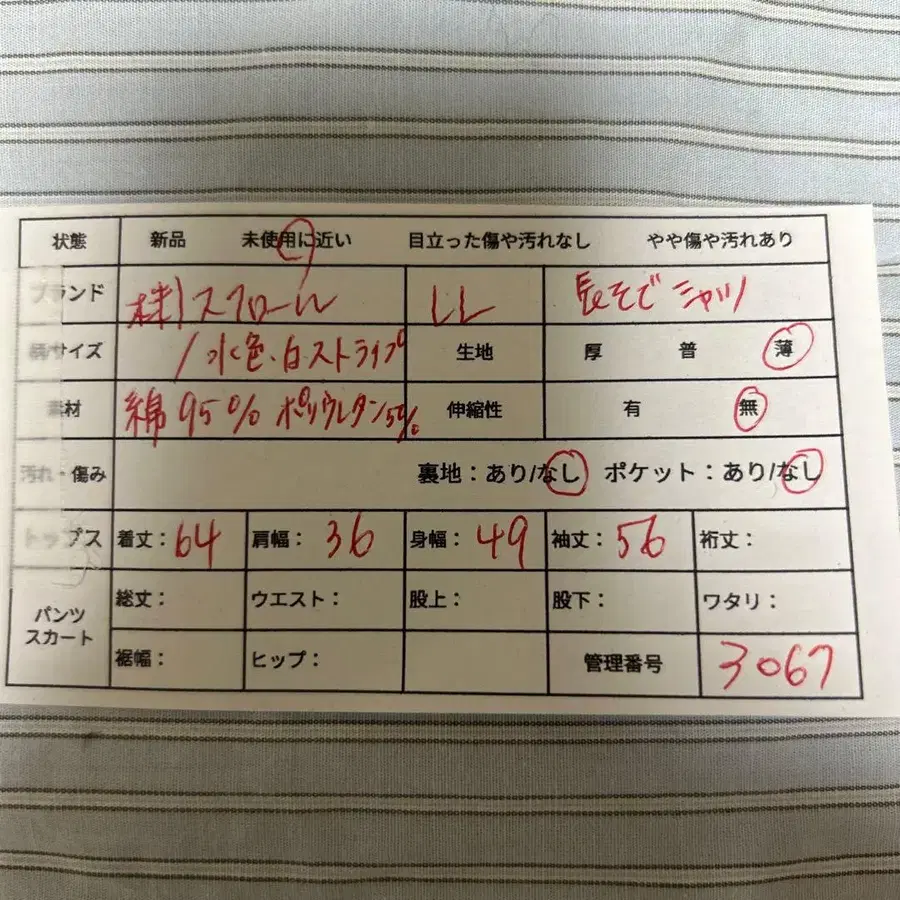 状態 新品 未使用に近い 目立った傷や汚れなし やや傷や汚れあり
ブランド 株)スクロール LL 長そでシャツ
サイズ / 水色・白ストライプ 生地 厚 普 薄
材 綿95% ポリウレタン5% 伸縮性 有 無
汚れ・傷み 裏地：あり/なし ポケット：あり/なし
トップス 着丈：64 肩幅：36 身幅：49 袖丈：56 裄丈：
パンツ スカート 総丈： ウエスト： 股上： 股下： ワタリ：
裾幅： ヒップ： 管理番号 3067